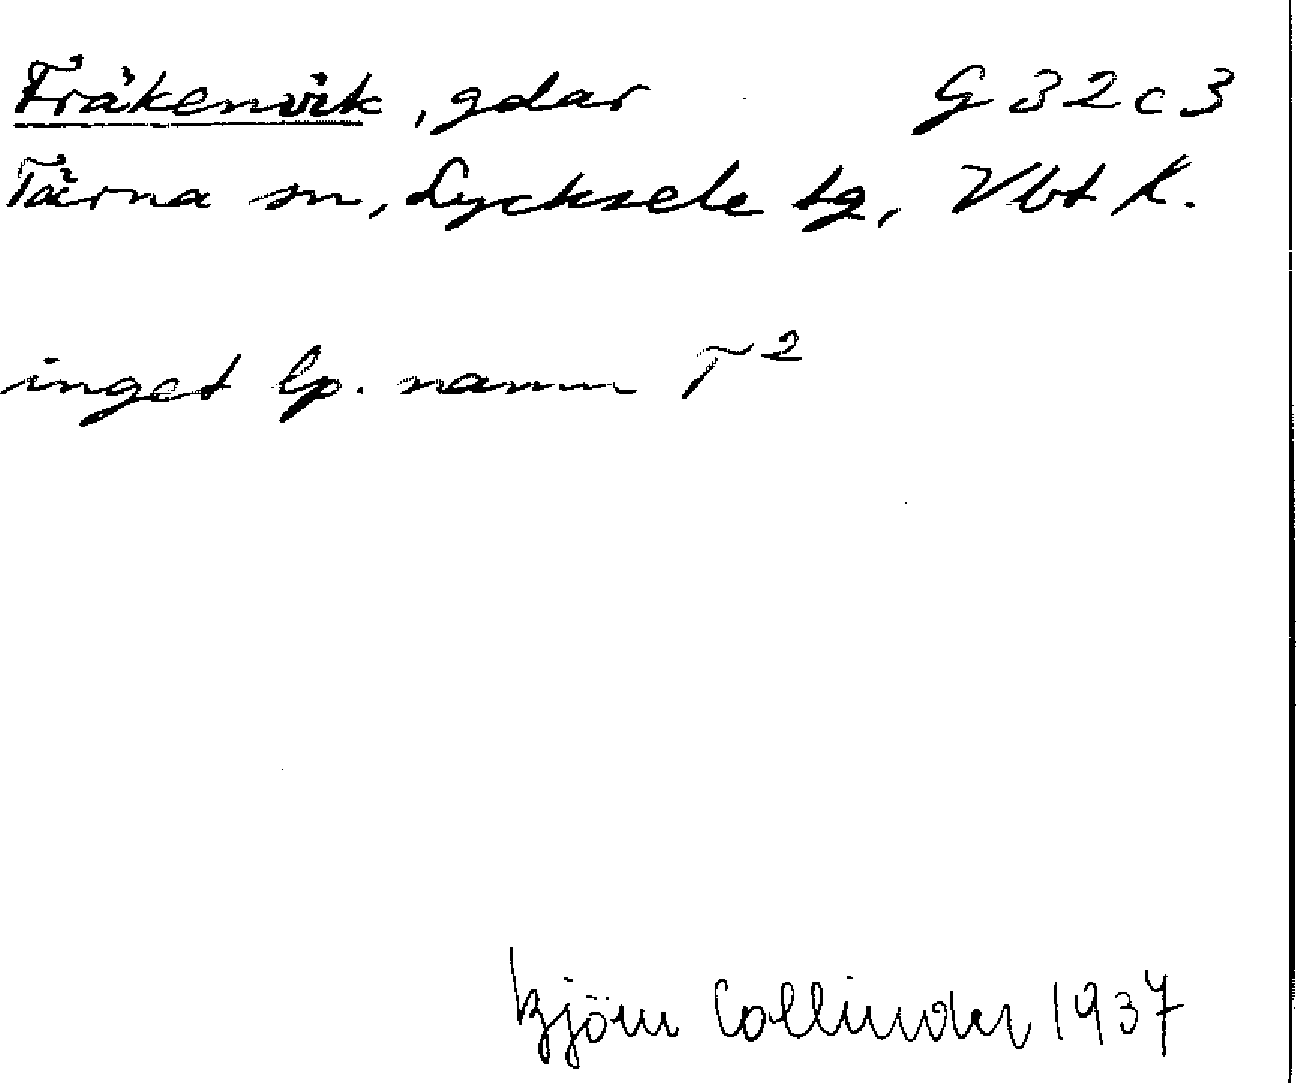 Fräkenvik, gdar G 32 c 3
Tärna sn, Lycksele tg, Vbt l.
inget lp. namn T²
Björn Collinder 1937